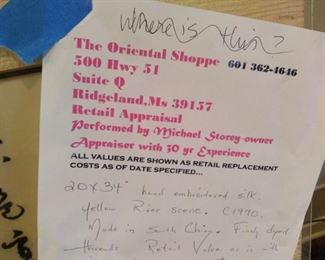 where is this?
The Oriental Shoppe 601 362-4646
500 Hwy 51
Suite Q
Ridgeland,Ms 39157
Retail Appraisal
Performed by Michael Storey-owner
Appraiser with 30 yr Experience
ALL VALUES ARE SHOWN AS RETAIL REPLACEMENT
COSTS AS OF DATE SPECIFIED...
20X34" hand embroidered silk.
Yellow River scene. C1970,
Made in South China. Finely dyed
threads Retail Value as is with